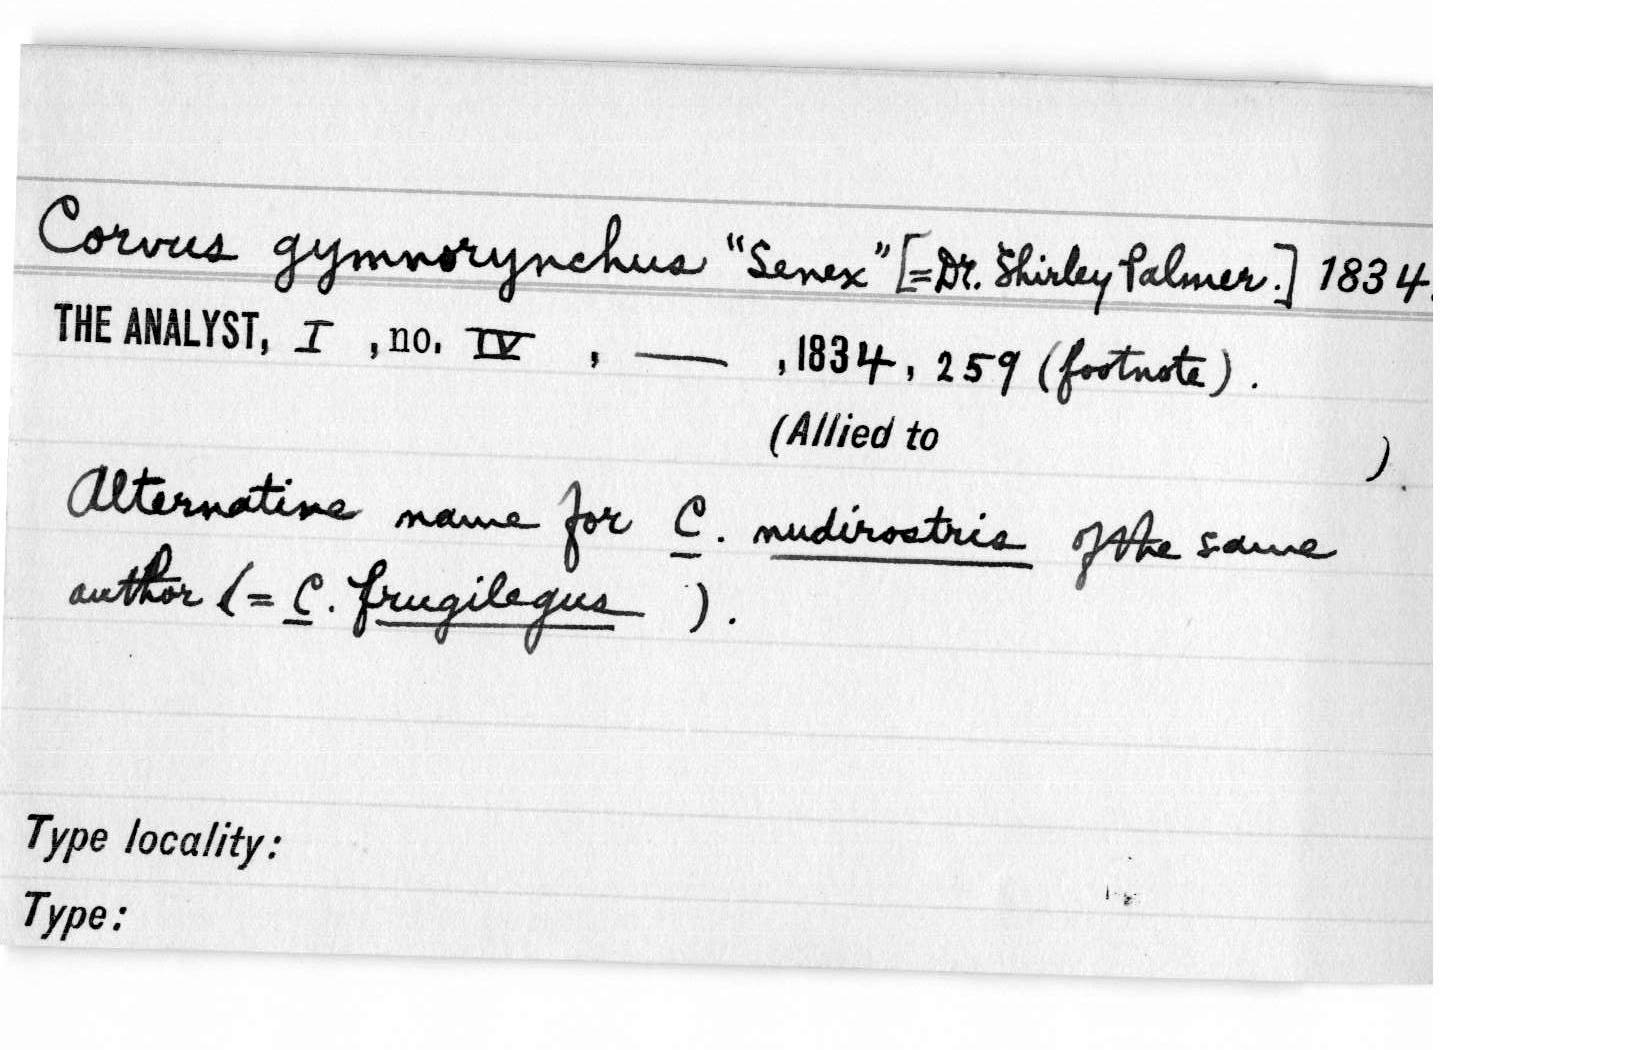 Corvus gymnorynchus "Senex" [=Dr. Shirley Palmer.] 1834.
THE ANALYST, I , no. IV , — , 1834, 259 (footnote).
(Allied to ).
Alternative name for C. nudirostris of the same
author (= C. frugilegus ).
Type locality:
Type: